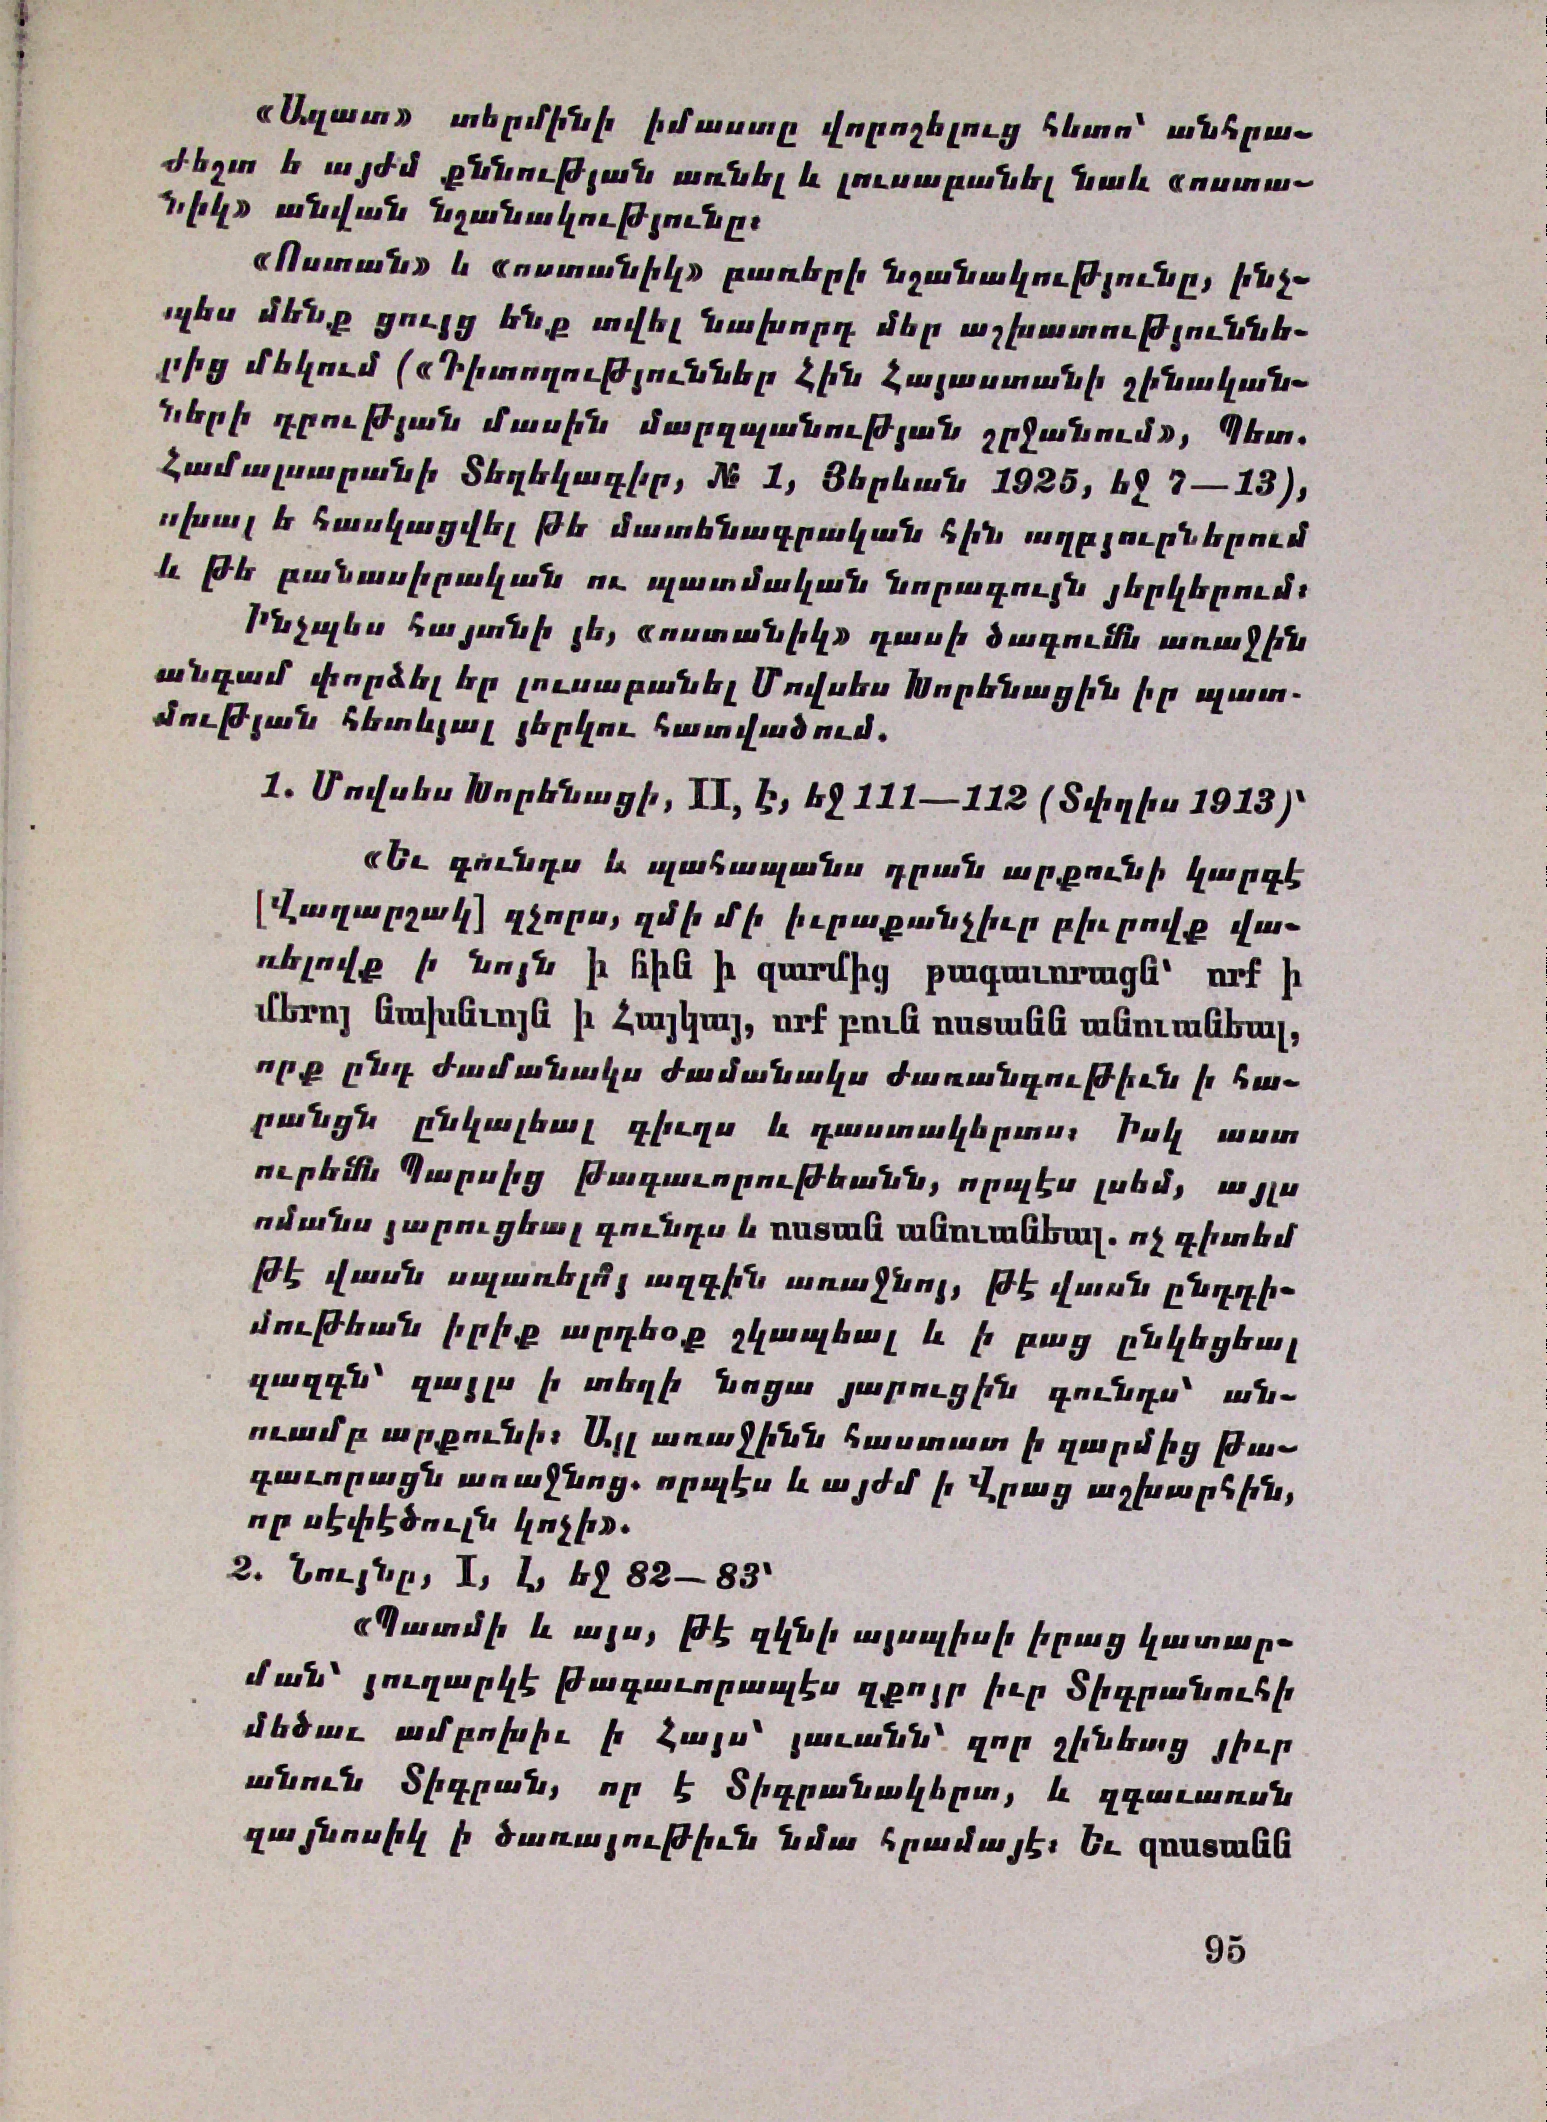 «Ազատ» տերմինի իմաստը վորոշելուց հետո՝ անհրա-
ժեշտ ե այժմ քննության առնել և լուսաբանել նաև «ոստա-
նիկ» անվան նշանակությունը։
«Ոստան» և «ոստանիկ» բառերի նշանակությունը, ինչ-
պես մենք ցույց ենք տվել նախորդ մեր աշխատություննե-
րից մեկում («Դիտողություններ Հին Հայաստանի շինական-
ների դրության մասին մարզպանության շրջանում», Պետ.
Համալսարանի Տեղեկագիր, № 1, Յերևան 1925, եջ 7—13),
սխալ ե հասկացվել թե մատենագրական հին աղբյուրներում
և թե բանասիրական ու պատմական նորագույն յերկերում։
Ինչպես հայտնի յե, «ոստանիկ» դասի ծագումն առաջին
անգամ փորձել եր լուսաբանել Մովսես Խորենացին իր պատ-
մության հետևյալ յերկու հատվածում.
1. Մովսես Խորենացի, II, է, եջ 111—112 (Տփղիս 1913)՝
«Եւ գունդս և պահապանս դրան արքունի կարգէ
[Վաղարշակ] զչորս, զմի մի իւրաքանչիւր բիւրովք վա-
ռելովք ի նոյն ի հին ի զարմից թագաւորացն՝ որք ի
մերոյ նախնւոյն ի Հայկայ, որք բուն ոստանն անուանեալ,
որք ընդ ժամանակս ժամանակս ժառանգութիւն ի հա-
րանցն ընկալեալ գիւղս և դաստակերտս։ Իսկ աստ
ուրեմն Պարսից թագաւորութեանն, որպէս լսեմ, այլս
ոմանս յարուցեալ գունդս և ոստան անուանեալ. ոչ գիտեմ
թէ վասն սպառելո՞յ ազգին առաջնոյ, թէ վասն ընդդի-
մութեան իրիք արդեօք շկապեալ և ի բաց ընկեցեալ
զազգն՝ զայլս ի տեղի նոցա յարուցին գունդս՝ ան-
ուամբ արքունի։ Այլ առաջինն հաստատ ի զարմից թա-
գաւորացն առաջնոց. որպէս և այժմ ի Վրաց աշխարհին,
որ սէփէծուլն կոչի».
2. Նույնը, I, Լ, եջ 82—83՝
«Պատմի և այս, թէ զկնի այսպիսի իրաց կատար-
ման՝ յուղարկէ թագաւորապէս զքոյր իւր Տիգրանուհի
մեծաւ ամբոխիւ ի Հայս՝ յաւանն՝ զոր շինեաց յիւր
անուն Տիգրան, որ է Տիգրանակերտ, և զգաւառսն
զայնոսիկ ի ծառայութիւն նմա հրամայէ։ Եւ զոստանն
95